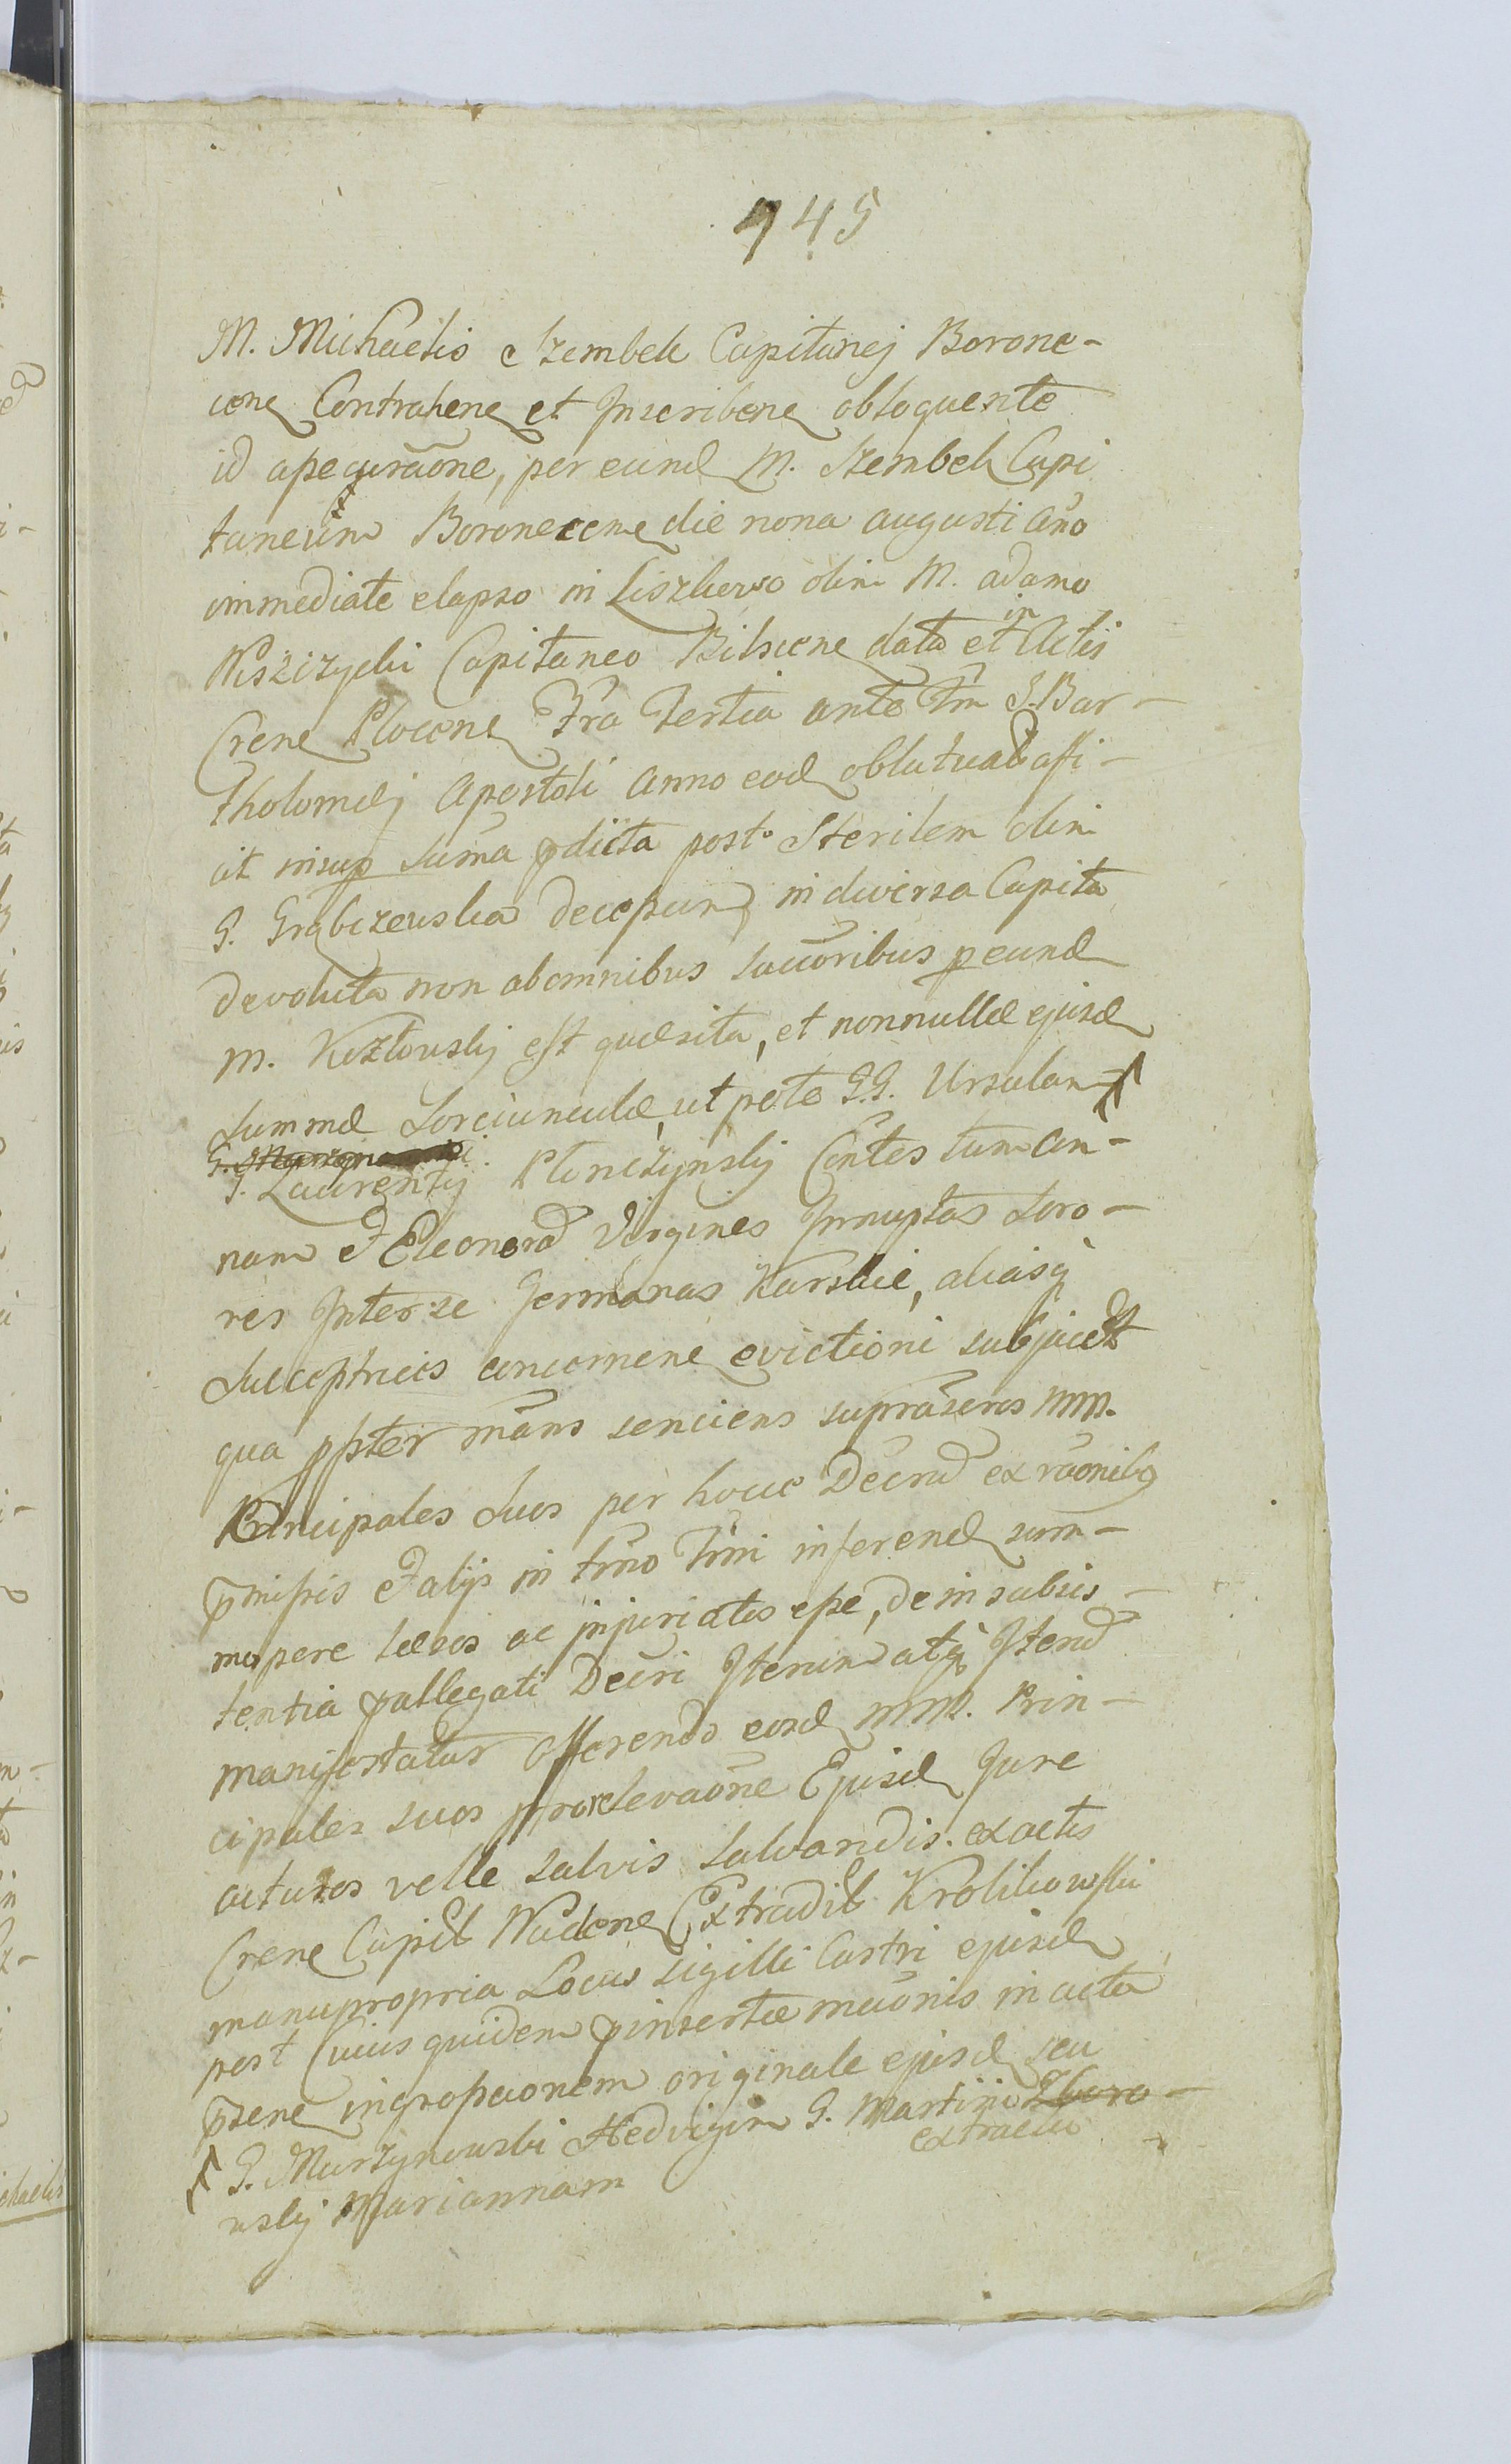 945
M. Michaelis Szembek Capitanej Borone-
cens Contrahens et Inscribens obloquente
id assecuraōne, per eund M. Szembek Capi
taneum Boronecens die nona augusti Año
immediate elapso in Liszkowo olim M. adamo
Niszczycki Capitaneo Bilscens data et in Actis
Crens Plocens Fra Tertia ante Fm S. Bar-
tholomæj Apostoli Anno eod oblatuad assi-
it insup suma pdicta post Sterilem olim
G. Grabczewska decessum in diversa Capita
devoluta non abomnibus succōribus p eund
M. Kozłowskj est quæsita, et nonnullæ ejusd
summæ Sorciunculæ, ut pote G.G. Ursulam
G. Laurentij Płonczynskj Contes tum An-
nam et Eleonorā Virgines Innuptas Soro-
res Inter se Germanas Karskie, aliasq
Susceptrices concernens evictioni subjacet
qua ppter mans senciens suprascros MM.
Principales suos per hocce Decrũ ex rāonibq
pmissis et alijs in Trno Trni inferend sum-
mopere læsos ac injuriatos esse, de in subsis-
tentia pallegati Decri Iterum atq Iterũ
manifestatur offerendo eosd MM. Prin-
cipales suos pro relevaōne Ejusd Jure
acturos velle salvis salvandis. ex actis
Crens Capit Extradit Krolikowski
manupropria Locus Sigilli Castri ejusd
post Cuius quidem pinsertæ māonis in acta
psens ingrossaonem originale ejusd seu
G. Murzynowski Hedvigim G. Martini Zboro-
extractu
wskj Mariannam